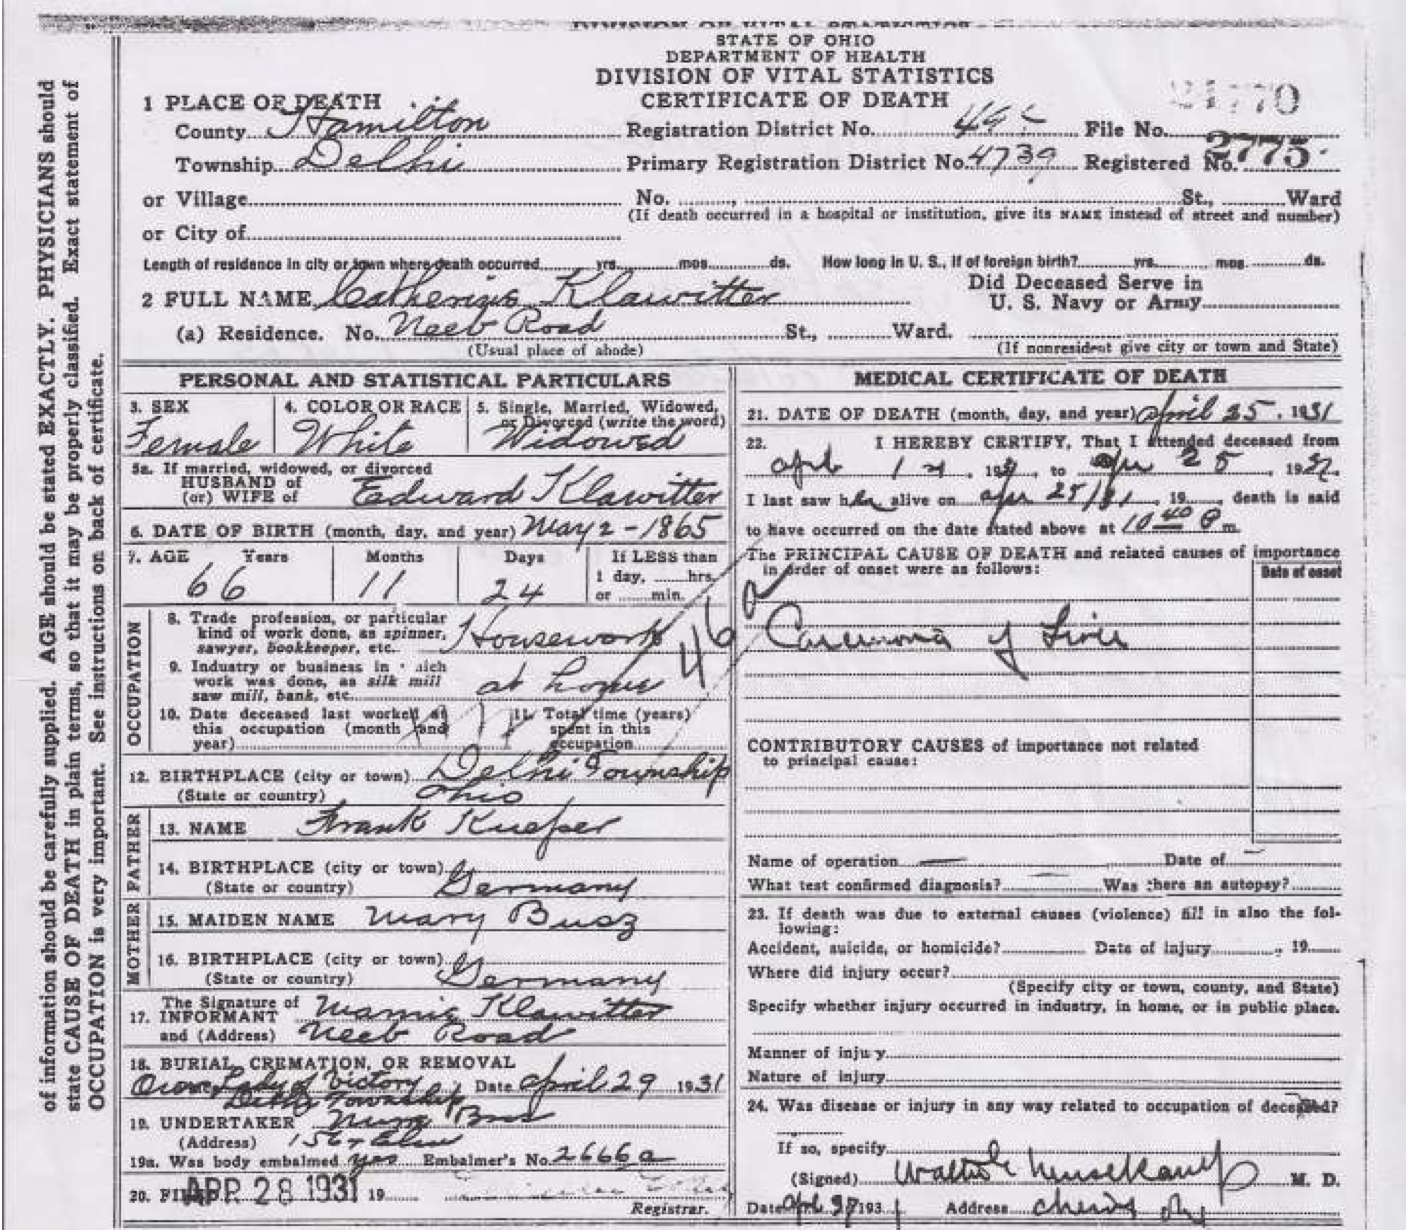 DIVISION OF VITAL STATISTICS
STATE OF OHIO
DEPARTMENT OF HEALTH
DIVISION OF VITAL STATISTICS
CERTIFICATE OF DEATH
1 PLACE OF DEATH
County Hamilton
Registration District No. File No. 21770
Township Delhi
Primary Registration District No. 4739 Registered No. 2775
or Village
No. St., Ward
(If death occurred in a hospital or institution, give its NAME instead of street and number)
or City of
Length of residence in city or town where death occurred yrs. mos. ds. How long in U. S., if of foreign birth? yrs. mos. ds.
2 FULL NAME Catherine Klawitter
Did Deceased Serve in
U. S. Navy or Army
(a) Residence. No. Neeb Road St., Ward.
(Usual place of abode)
(If nonresident give city or town and State)
PERSONAL AND STATISTICAL PARTICULARS
3. SEX
Female
4. COLOR OR RACE
White
5. Single, Married, Widowed,
or Divorced (write the word)
Widowed
5a. If married, widowed, or divorced
HUSBAND of
(or) WIFE of Edward Klawitter
6. DATE OF BIRTH (month, day, and year) May 2 - 1865
7. AGE Years Months Days If LESS than
1 day, hrs.
or min.
66 11 24
OCCUPATION
8. Trade profession, or particular
kind of work done, as spinner,
sawyer, bookkeeper, etc. Housework
9. Industry or business in which
work was done, as silk mill
saw mill, bank, etc. at home
10. Date deceased last worked at
this occupation (month and
year)
11. Total time (years)
spent in this
occupation
12. BIRTHPLACE (city or town) Delhi Township
(State or country) Ohio
FATHER
13. NAME Frank Kuefer
14. BIRTHPLACE (city or town)
(State or country) Germany
MOTHER
15. MAIDEN NAME Mary Busz
16. BIRTHPLACE (city or town)
(State or country) Germany
17. The Signature of
INFORMANT Mamie Klawitter
and (Address) Neeb Road
18. BURIAL, CREMATION, OR REMOVAL
Our Lady of Victory Date April 29 1931
Delhi Township
19. UNDERTAKER
(Address)
19a. Was body embalmed yes Embalmer's No. 2666a
20. FILED APR 28 1931 19
Registrar.
MEDICAL CERTIFICATE OF DEATH
21. DATE OF DEATH (month, day, and year) April 25, 1931
22. I HEREBY CERTIFY, That I attended deceased from
to Apr 25, 19
I last saw her alive on Apr 25/31, 19 death is said
to have occurred on the date stated above at 10 40 P m.
The PRINCIPAL CAUSE OF DEATH and related causes of importance
in order of onset were as follows:
Date of onset
46
Carcinoma of Liver
CONTRIBUTORY CAUSES of importance not related
to principal cause:
Name of operation — Date of —
What test confirmed diagnosis? Was there an autopsy?
23. If death was due to external causes (violence) fill in also the fol-
lowing:
Accident, suicide, or homicide? Date of injury , 19
Where did injury occur?
(Specify city or town, county, and State)
Specify whether injury occurred in industry, in home, or in public place.
Manner of injury
Nature of injury
24. Was disease or injury in any way related to occupation of deceased?
If so, specify
(Signed) M. D.
Date 193 Address
of information should be carefully supplied. AGE should be stated EXACTLY. PHYSICIANS should
state CAUSE OF DEATH in plain terms, so that it may be properly classified. Exact statement of
OCCUPATION is very important. See instructions on back of certificate.